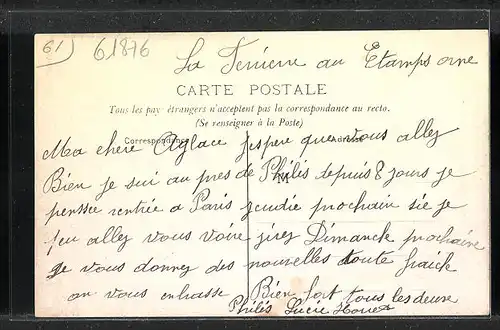 61
61876
La Ferriere au Etamps orne
CARTE POSTALE
Tous les pays étrangers n'acceptent pas la correspondance au recto.
(Se renseigner à la Poste)
Correspondance
Adresse
Ma chere Aglace jespere que vous allez
Bien je sui au pres de Philés depuis 8 jours je
penssée rentrée a Paris jeudie prochain sie je
peu allez vous voire jirez Dimanche prochaine
Je vous donnez des nouvelles toute fraich
on vous enbrasse Bien fort tous les deuse
Philés Lucie